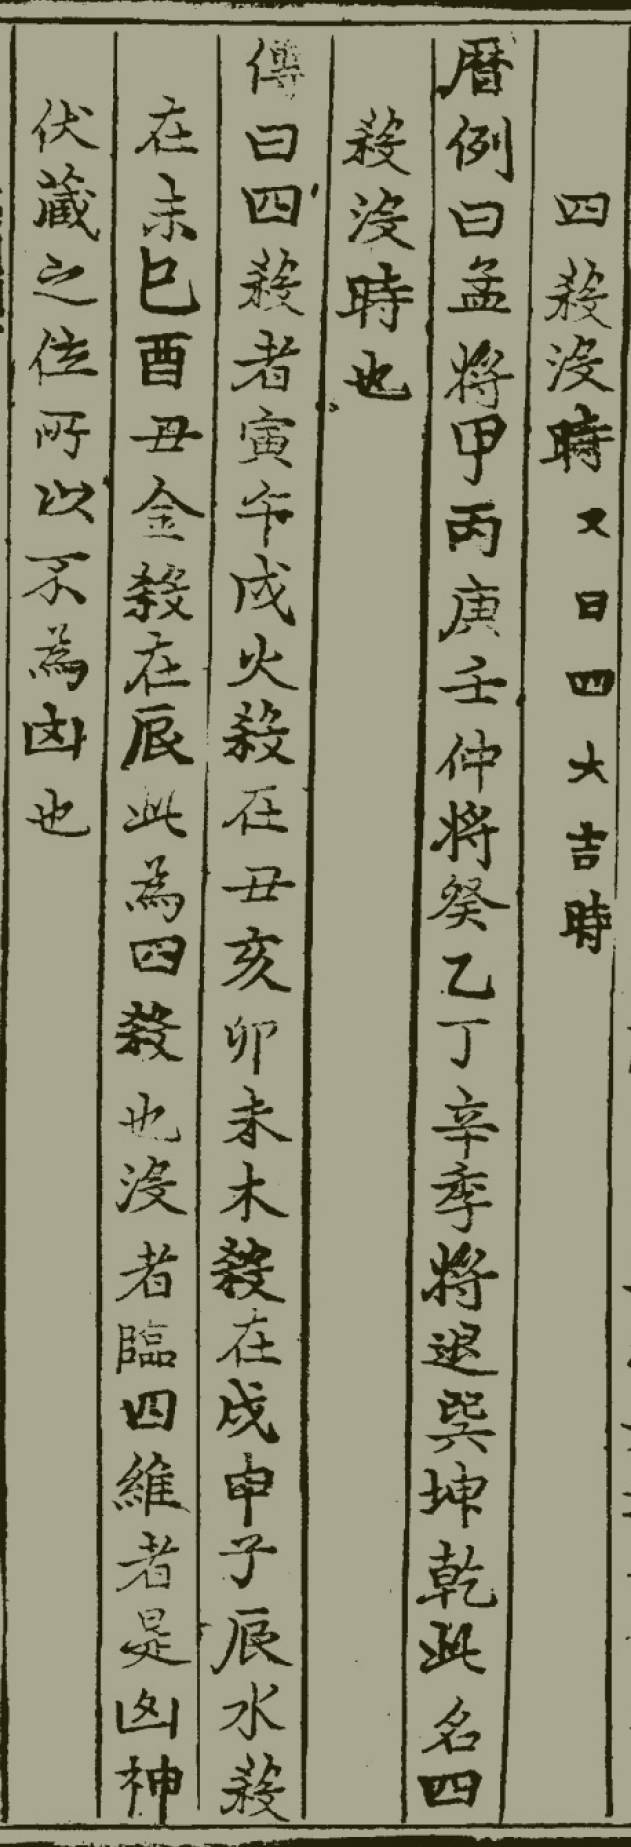 四殺没時又曰四大吉時
暦例曰孟将甲丙庚壬仲将癸乙丁辛季将退巽坤乾此名四
殺没時也
傳曰四殺者寅午戌火殺在丑亥卯未木殺在戌申子辰水殺
在未巳酉丑金殺在辰此為四殺也没者臨四維者是凶神
伏蔵之位所以不為凶也